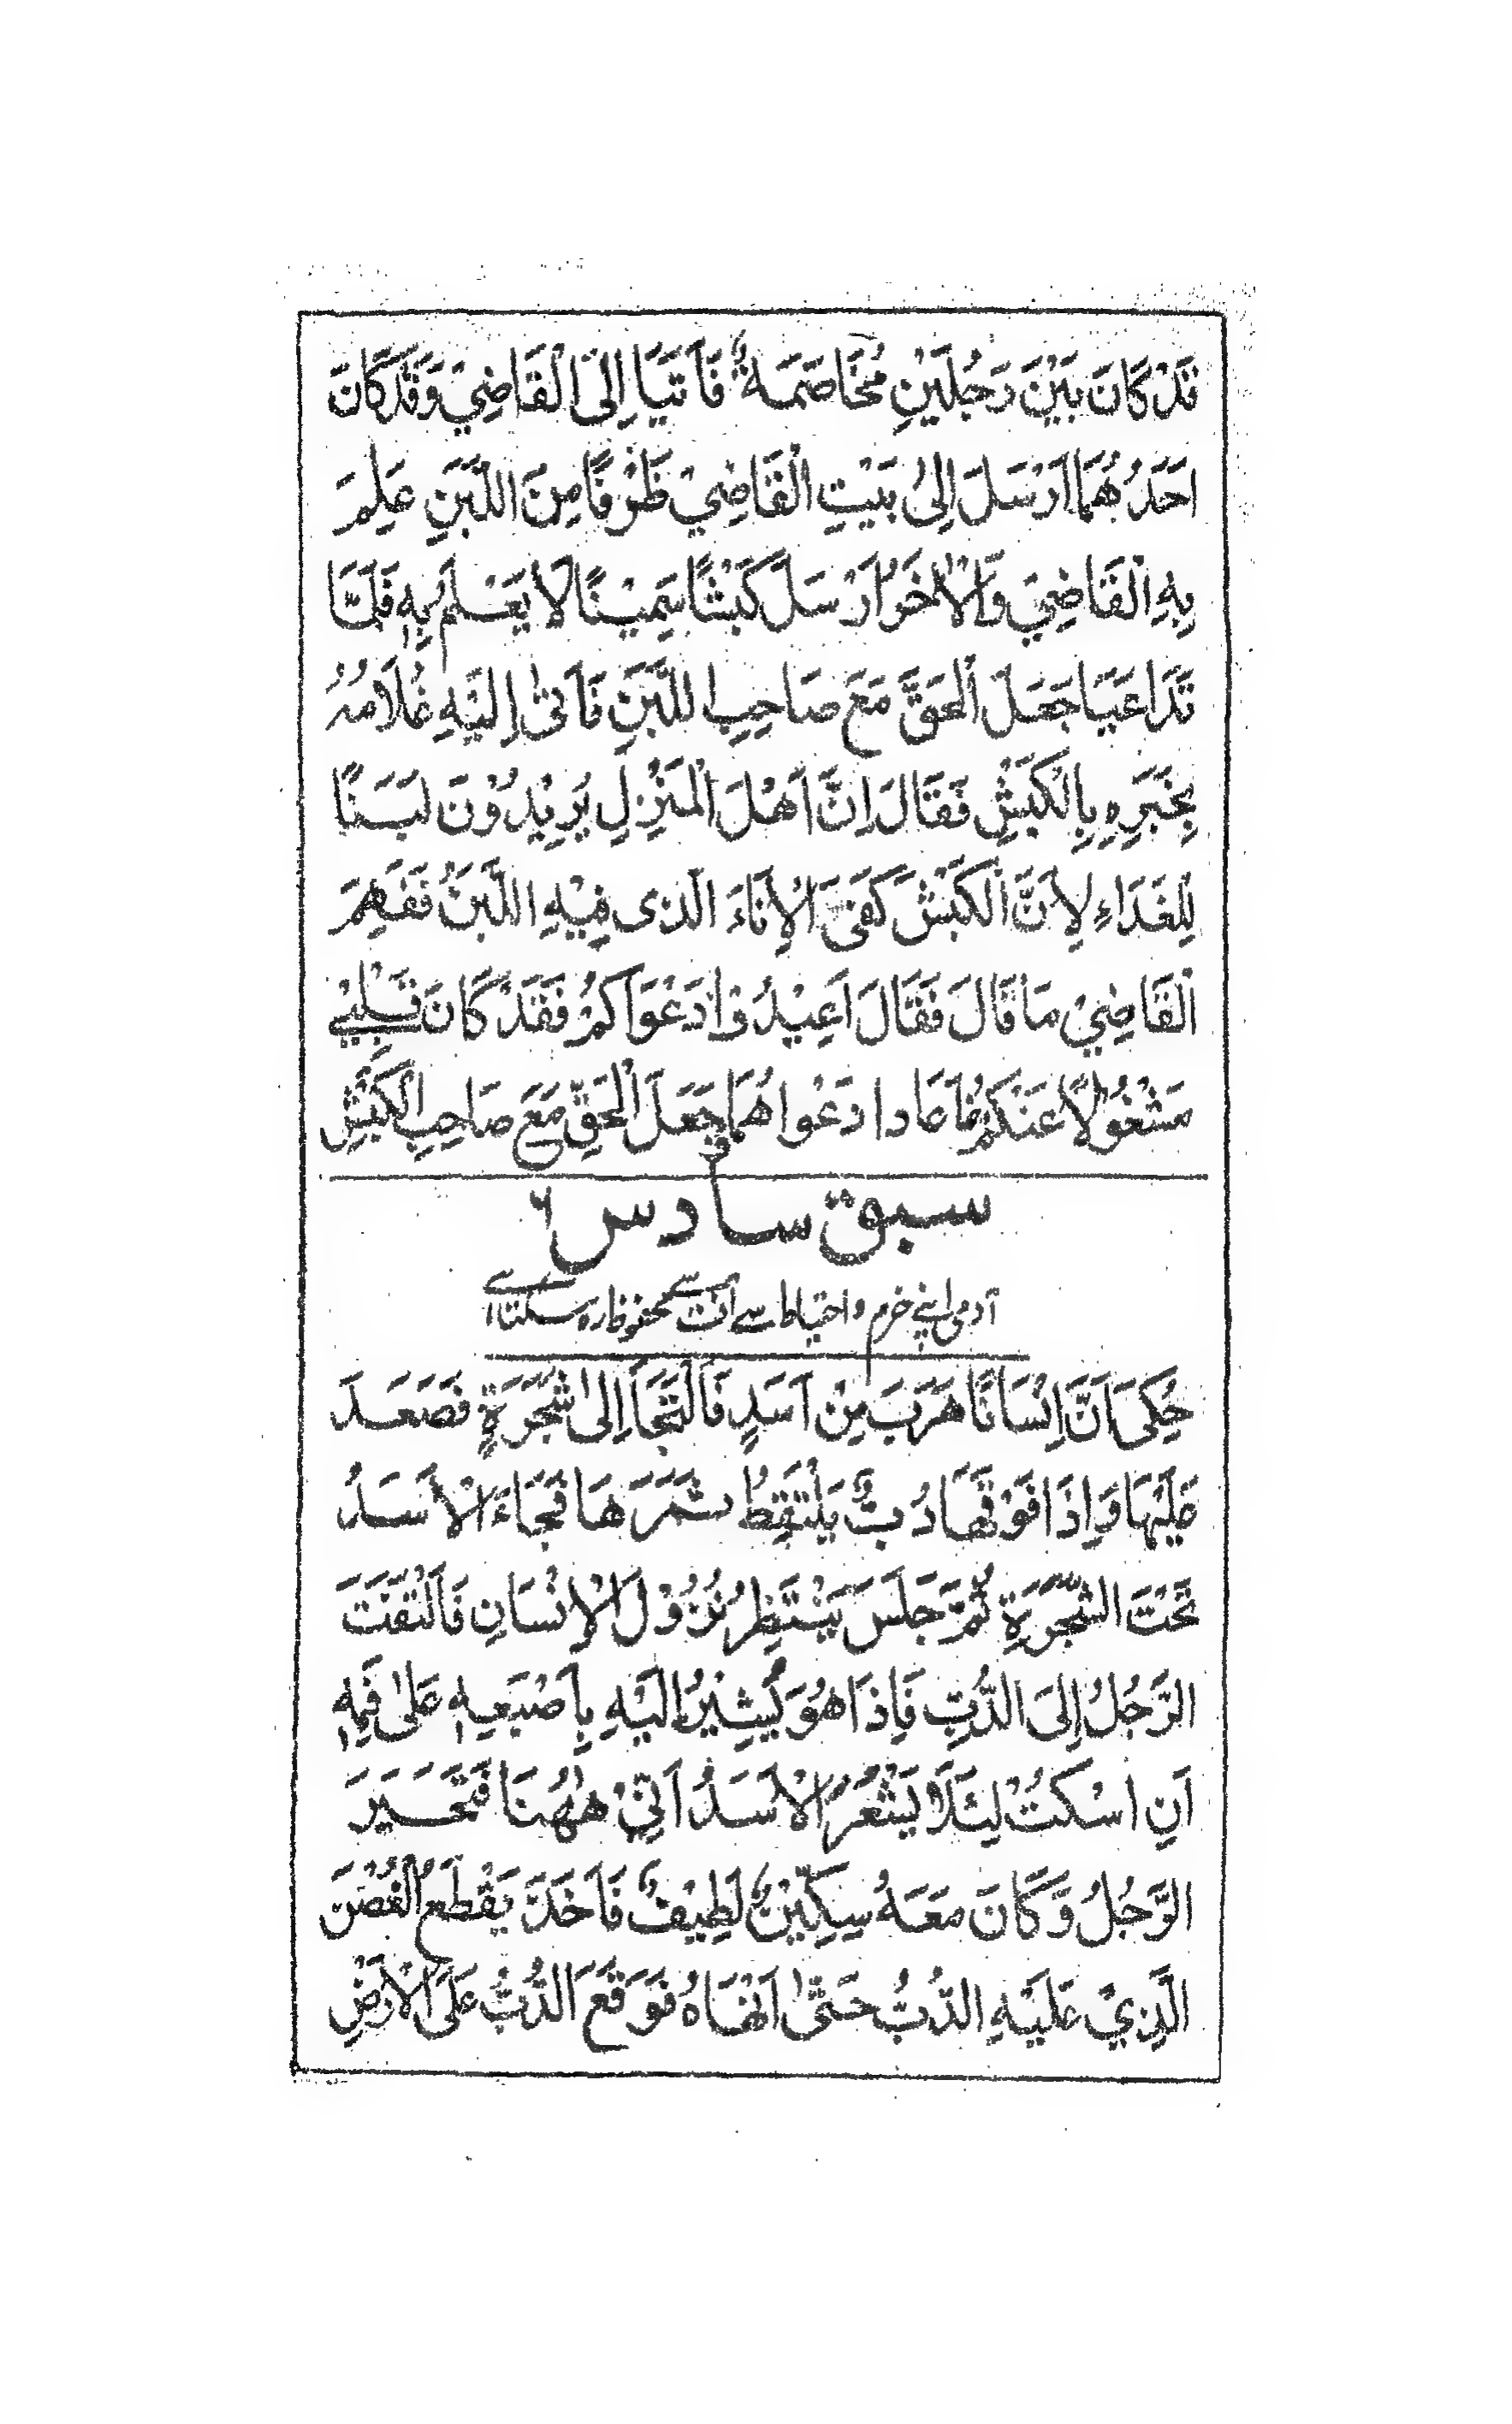 قَدْ كَانَ بَيْنَ رَجُلَيْنِ مُخَاصَمَةٌ فَأَتَيَا إِلَى الْقَاضِيْ وَقَدْ كَانَ
اَحَدُهُمَا اَرْسَلَ اِلىٰ بَيْتِ الْقَاضِيْ ظَرْفًا مِنَ اللَّبَنِ عَلِمَ
بِهِ الْقَاضِيْ وَالْاٰخَرُ اَرْسَلَ كَبْشًا سَمِيْنًا لَا يَعْلَمُ بِهٖ فَلَمَّا
تَدَاعَيَا جَعَلَ الْحَقَّ مَعَ صَاحِبِ اللَّبَنِ فَاَتىٰ اِلَيْهِ غُلَامُهُ
يُخْبِرُهُ بِالْكَبْشِ فَقَالَ اِنَّ اَهْلَ الْمَنْزِلِ يُرِيْدُوْنَ لَبَنًا
لِلْغَدَاءِ لِاَنَّ الْكَبْشَ كَفَىَ الْاِنَاءَ الَّذِى فِيْهِ اللَّبَنُ فَفَهِمَ
الْقَاضِيْ مَا قَالَ فَقَالَ اَعِيْدُوْا دَعْوَاكُمْ فَقَدْ كَانَ قَلْبِيْ
مَشْغُوْلًا عَنْكُمْ فَاَعَادا دَعْواهُمَا فَجَعَلَ الْحَقَّ مَعَ صَاحِبِ الْكَبْشِ
سبق سادس ۶
آدمی اپنے حزم و احتیاط سے آفت سے محفوظ رہ سکتا ہے
حُكِىَ اَنَّ اِنْسَانًا هَرَبَ مِنْ اَسَدٍ فَالْتَجَاَ اِلىٰ شَجَرَةٍ فَصَعَدَ
عَلَيْهَا وَاِذَا فَوْقَهَا دُبٌّ يَلْتَقِطُ ثَمَرَهَا فَجَاءَ الْاَسَدُ
تَحْتَ الشَّجَرَةِ ثُمَّ جَلَسَ يَنْتَظِرُ نُزُوْلَ الْاِنْسَانِ فَالْتَفَتَ
الرَّجُلُ اِلَى الدُّبِّ فَاِذَا هُوَ يُشِيْرُ اِلَيْهِ بِاَصْبَعِهٖ عَلىٰ فَمِهٖ
اَنِ اسْكُتْ لِئَلَّا يَشْعُرَ الْاَسَدُ اَنِّيْ هٰهُنَا فَتَحَيَّرَ
الرَّجُلُ وَكَانَ مَعَهُ سِكِّيْنٌ لَطِيْفٌ فَاَخَذَ يَقْطَعُ الْغُصْنَ
الَّذِيْ عَلَيْهِ الدُّبُّ حَتّٰى اَنْهَاهُ فَوَقَعَ الدُّبُّ عَلَى الْاَرْضِ